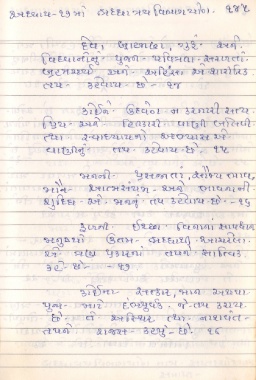 અધ્યાય-૧૭મો શ્રદ્ધાત્રય વિભાગ યોગ. ૧૪૫
દેવ, બ્રાહ્મણ, ગુરૂ અને
વિદ્વાનોનું પુજન પવિત્રતા સરળતા
બ્રહ્મચર્ય અને અહિંસા એ શારીરિક
તપ કહેવાય છે - ૧૪
કોઈને ઉદ્વેગ ન કરનારી સત્ય
પ્રિય અને હિતકારી વાણી બોલવી
તથા સ્વાધ્યાયનો અભ્યાસ એ
વાણીનું તપ કહેવાય છે. ૧૫
મનની પ્રસન્નતા, સૌમ્ય ભાવ,
મૌન આત્મસંયમ અને ભાવનાની
શુદ્ધિ એ મનનું તપ કહેવાય છે - ૧૬
ફળની ઈચ્છા વિનાનાં
મનુષ્યો ઉત્તમ શ્રદ્ધાથી આચરેલા
એ ત્રણ પ્રકારનાં તપને સાત્વિક
કહે છે - ૧૭
કોઈના સત્કાર, માન અથવા
પુજા માટે દંભપુર્વક જે તપ કરાય
છે તે અસ્થિર તથા નાશવંત
તપને રાજસ કહ્યું છે. ૧૮